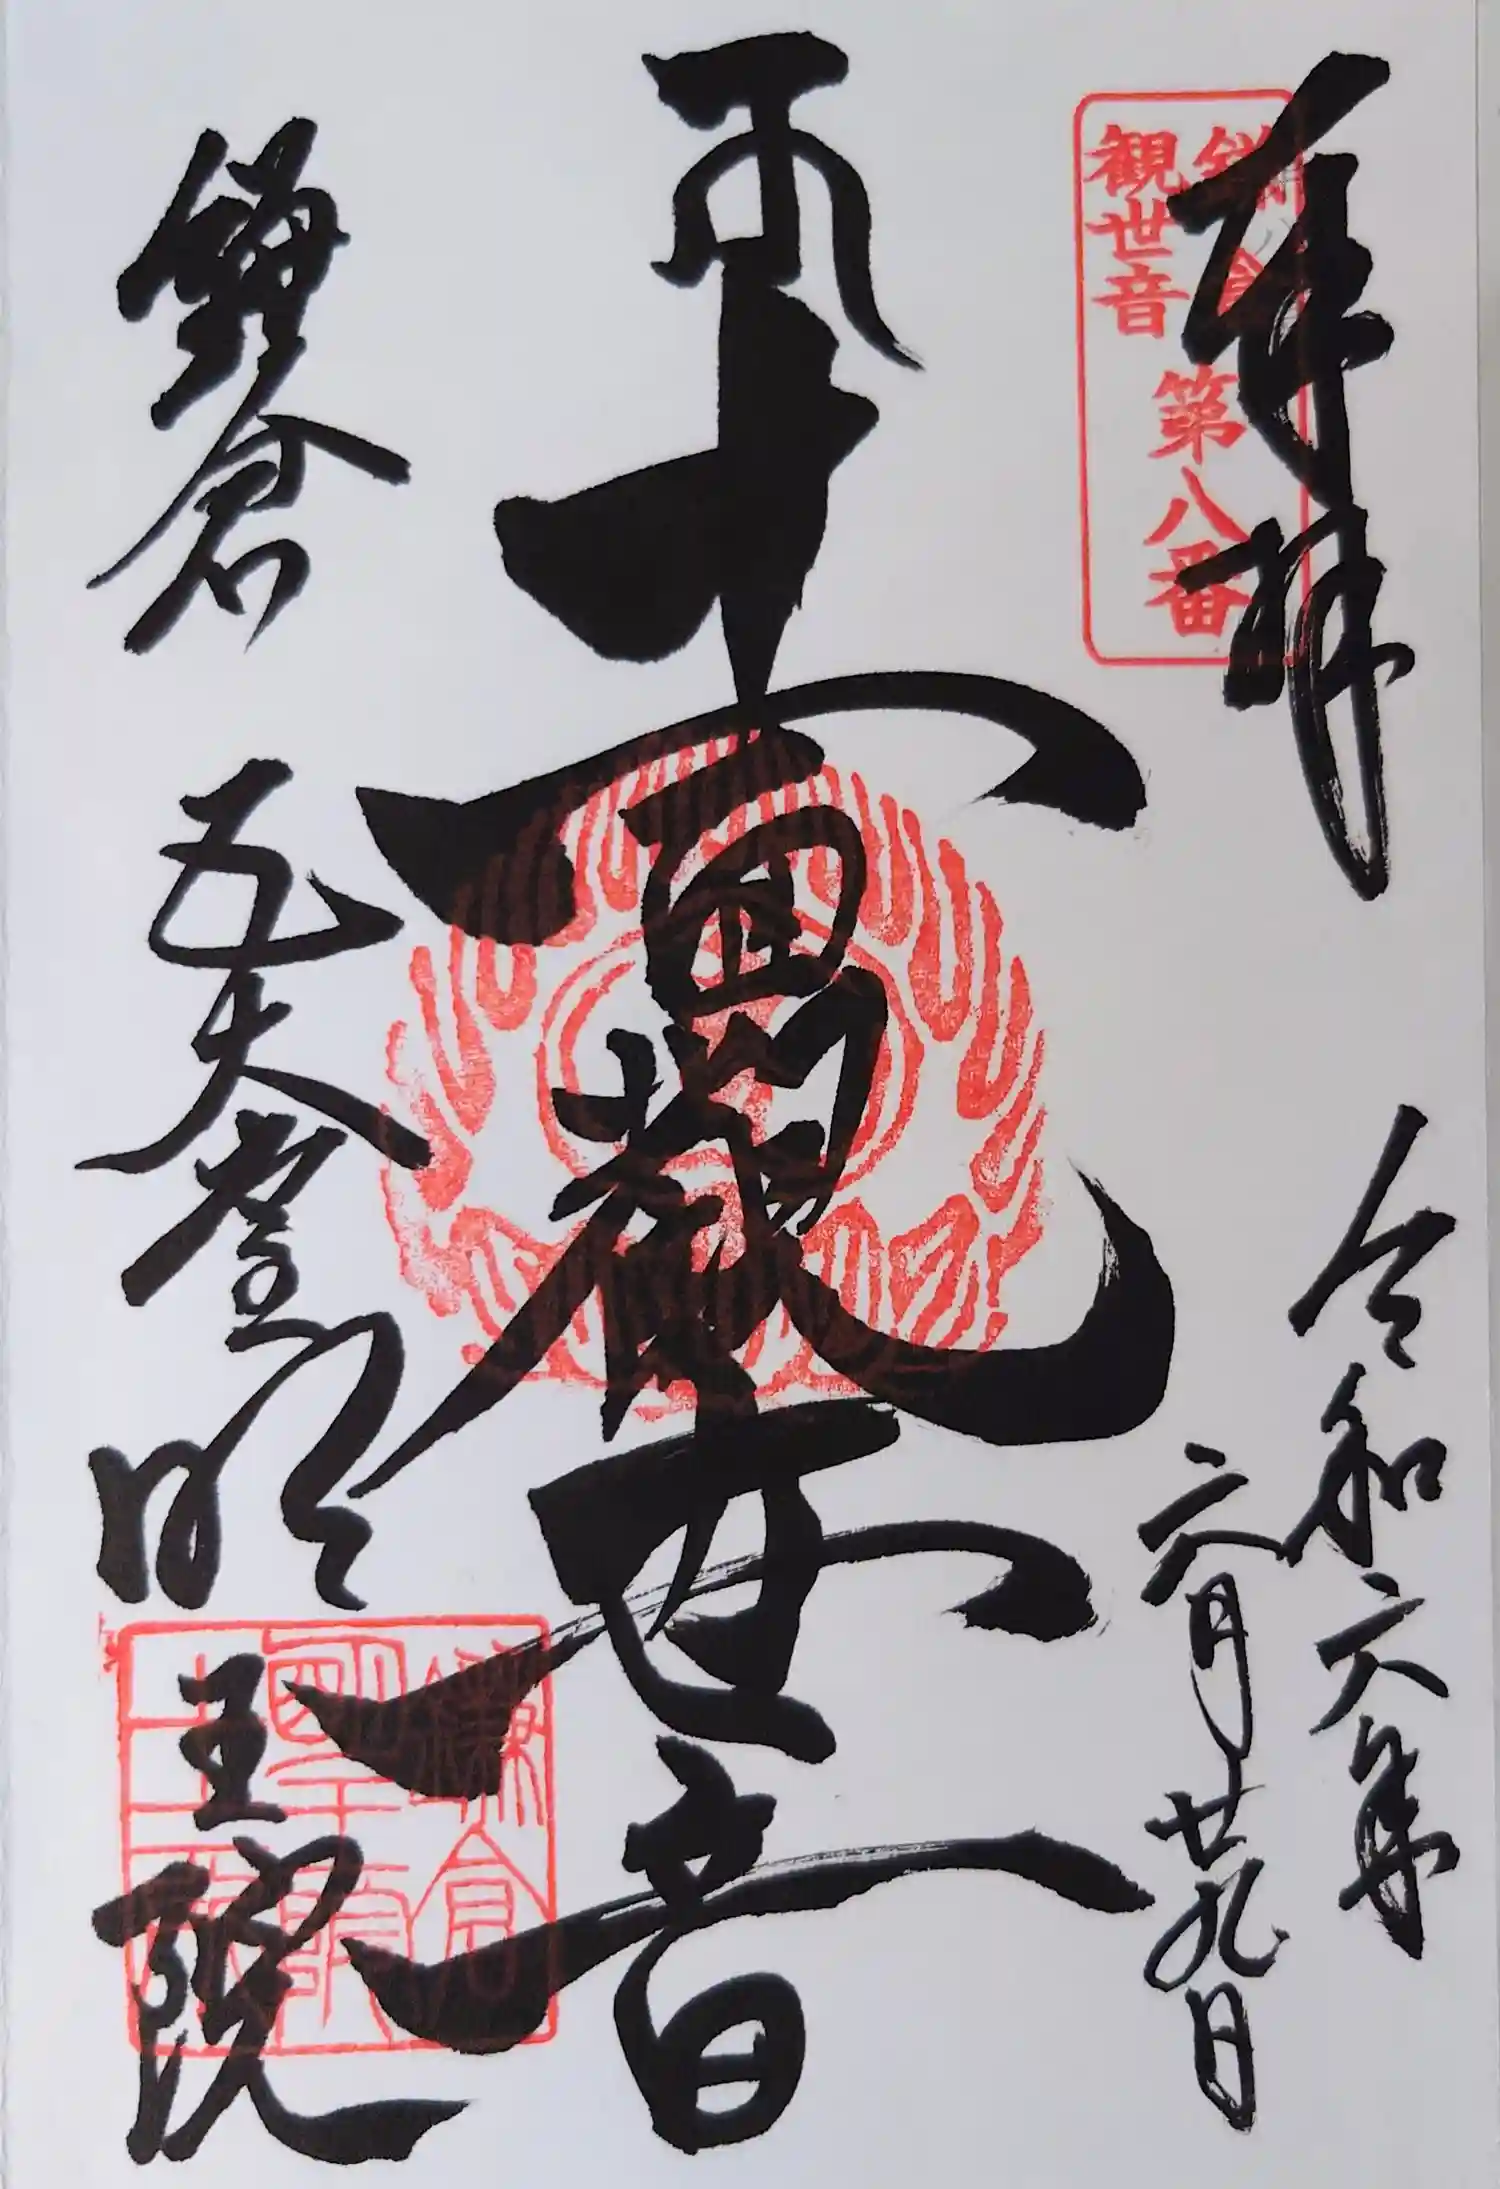 奉拝
鎌倉
観世音
第八番
令和六年
六月廿九日
十一面観世音
鎌倉 五大堂 明王院